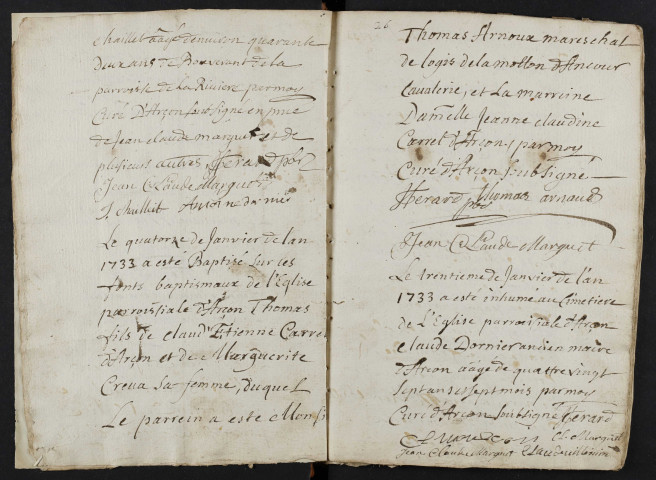 chaillet aagé denviron quarante
deux ans de Bouverant de la
parroisse de la Riviere par moy
Curé D'Arçon soussigné en pnce
de Jean claude marguet et de
plusieurs autres Herard pbr
Jean Claude Marguet
J chaillet
Le quatorze de Janvier de lan
1733 a esté Baptisé sur les
fonts baptismaux de l'Eglise
parroissiale d'Arçon Thomas
fils de claud Etienne Carrel
d'Arçon et de Marguerite
Creva sa femme, duquel
Le parrein a esté Monsi
26
Thomas Arnoux mareschal
de logis de la motton d'Ancour
Cavalerie, et La marreine
Damelle Jeanne claudine
Carrel d'Arçon, par moy
Curé d'Arçon soubsigné
Herard pbr Thomas arnaud
Jean Claude Marguet
Le trentieme de Janvier de l'an
1733 a esté inhumé au Cimetiere
de L'Eglise parroissiale d'Arçon
claude Dornier ancien maire
d'Arçon aagé de quattre vingt
sept ans et sept mois par moy
Curé d'Arçon soubsigné Herard
Cl Marguet
Jean Claude Marguet